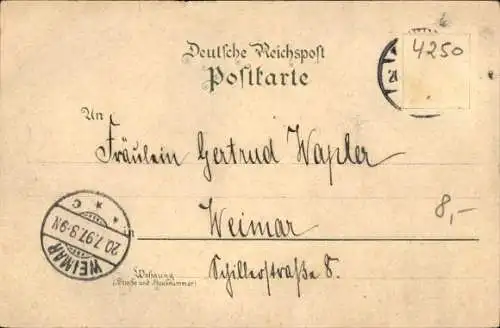 4250
Deutsche Reichspost
Postkarte
An
Fräulein Gertrud Wapler
8,-
Weimar
in
WEIMAR 20.7.97.8-9N. * * C
Schillerstraße 8.
Wohnung
(Straße und Hausnummer)